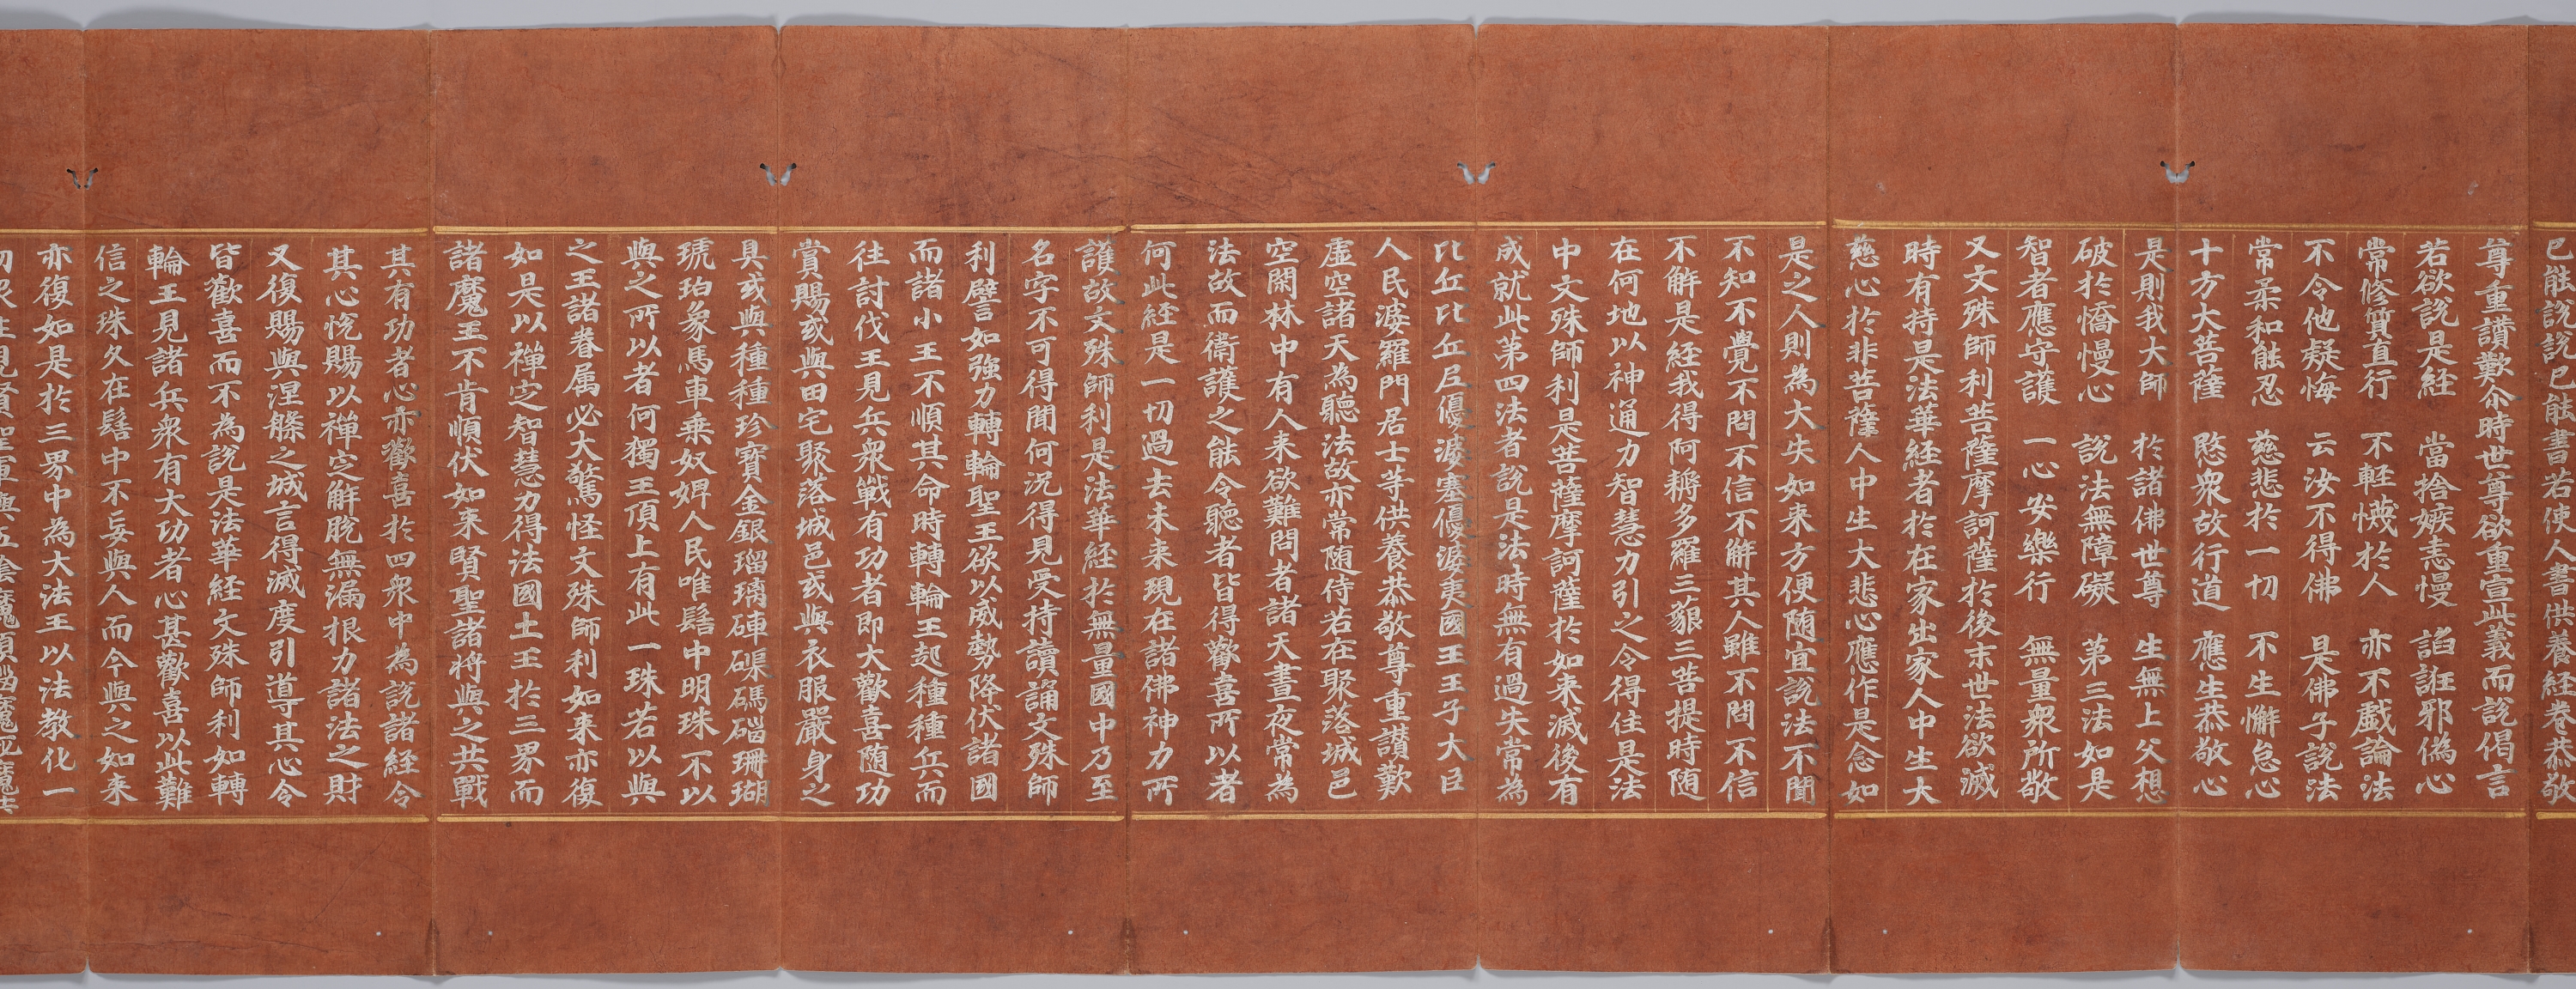 已能說說已能書若使人書供養經卷恭敬
尊重讃歎尒時世尊欲重宣此義而說偈言
若欲說是経　當捨嫉恚慢　謟誑邪偽心
常修質直行　不輕懱於人　亦不戯論法
不令他疑悔　云汝不得佛　是佛子說法
常柔和能忍　慈悲於一切　不生懈怠心
十方大菩薩　愍衆故行道　應生恭敬心
是則我大師　於諸佛世尊　生無上父想
破於憍慢心　說法無障礙　第三法如是
智者應守護　一心安樂行　無量衆所敬
又文殊師利菩薩摩訶薩於後末世法欲滅
時有持是法華経者於在家出家人中生大
慈心於非菩薩人中生大悲心應作是念如
是之人則為大失如来方便随宜說法不聞
不知不覺不問不信不解其人雖不問不信
不解是経我得阿耨多羅三藐三菩提時随
在何地以神通力智慧力引之令得住是法
中文殊師利是菩薩摩訶薩於如来滅後有
成就此第四法者說是法時無有過失常為
比丘比丘尼優婆塞優婆夷國王王子大臣
人民婆羅門居士等供養恭敬尊重讃歎
虛空諸天為聽法故亦常随侍若在聚落城邑
空閑林中有人来欲難問者諸天晝夜常為
法故而衛護之能令聽者皆得歡喜所以者
何此経是一切過去未来現在諸佛神力所
護故文殊師利是法華経於無量國中乃至
名字不可得聞何況得見受持讀誦文殊師
利譬如強力轉輪聖王欲以威勢降伏諸國
而諸小王不順其命時轉輪王起種種兵而
往討伐王見兵衆戰有功者即大歡喜随功
賞賜或與田宅聚落城邑或與衣服嚴身之
具或與種種珍寶金銀瑠璃硨磲碼碯珊瑚
琥珀象馬車乗奴婢人民唯髻中明珠不以
與之所以者何獨王頂上有此一珠若以與
之王諸眷属必大驚怪文殊師利如来亦復
如是以禪定智慧力得法國土王於三界而
諸魔王不肯順伏如来賢聖諸將與之共戰
其有功者心亦歡喜於四衆中為說諸経令
其心恱賜以禪定解脫無漏根力諸法之財
又復賜與涅槃之城言得滅度引導其心令
皆歡喜而不為說是法華経文殊師利如轉
輪王見諸兵衆有大功者心甚歡喜以此難
信之珠久在髻中不妄與人而今與之如来
亦復如是於三界中為大法王以法教化一